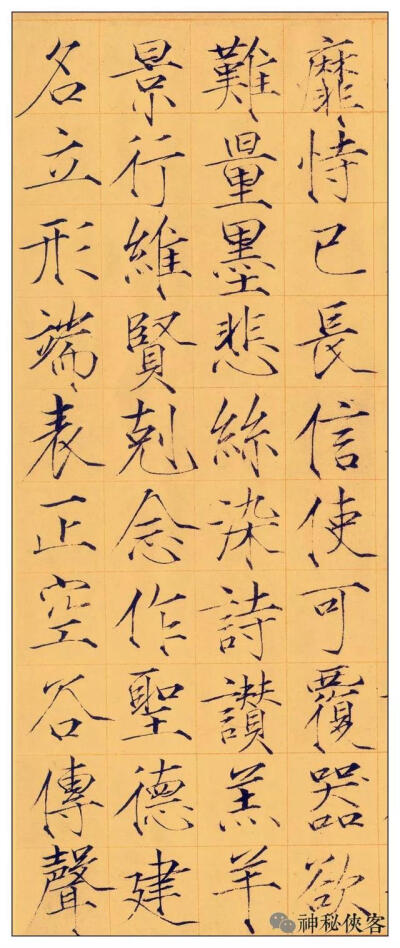 靡恃己長信使可覆器欲
難量墨悲絲染詩讚羔羊
景行維賢剋念作聖德建
名立形端表正空谷傳聲
神秘俠客